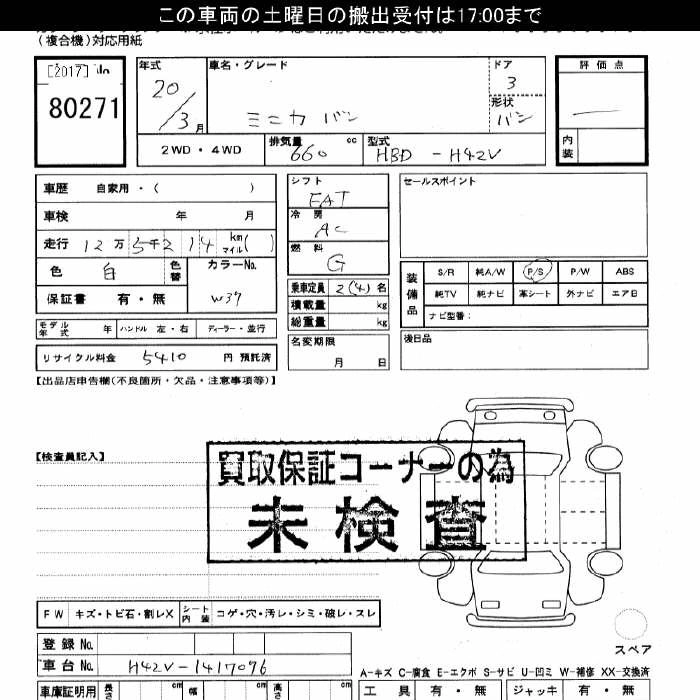 この車両の土曜日の搬出受付は17:00まで
(複合機)対応用紙
[2017]
80271
年式 車名・グレード ドア 評価点
20/3月 ミニカ バン 3
形状 バン
内装
2WD・4WD 排気量 660 cc 型式 HBD-H42V
車歴 自家用・( )
車検 年 月
走行 12万5千214 km マイル( )
色 白 色替 カラーNo. W37
保証書 有・無
モデル年式 年 ハンドル 左・右 ディーラー・並行
リサイクル料金 5410 円 預託済
シフト FAT
冷房 AC
燃料 G
乗車定員 2(4)名
積載量 kg
総重量 kg
名変期限
月 日
セールスポイント
装備品 S/R 純A/W P/S P/W ABS
純TV 純ナビ 革シート 外ナビ エアB
ナビ型番:
後日品
【出品店申告欄(不良箇所・欠品・注意事項等)】
【検査員記入】
買取保証コーナーの為
未検査
FW キズ・トビ石・割レX シート内装 コゲ・穴・汚レ・シミ・破レ・スレ
スペア
登録No.
車台No. H42V-1417096
A-キズ C-腐食 E-エクボ S-サビ U-凹ミ W-補修 XX-交換済
車庫証明用 長さ cm 幅 cm 高さ cm 工具 有・無 ジャッキ 有・無